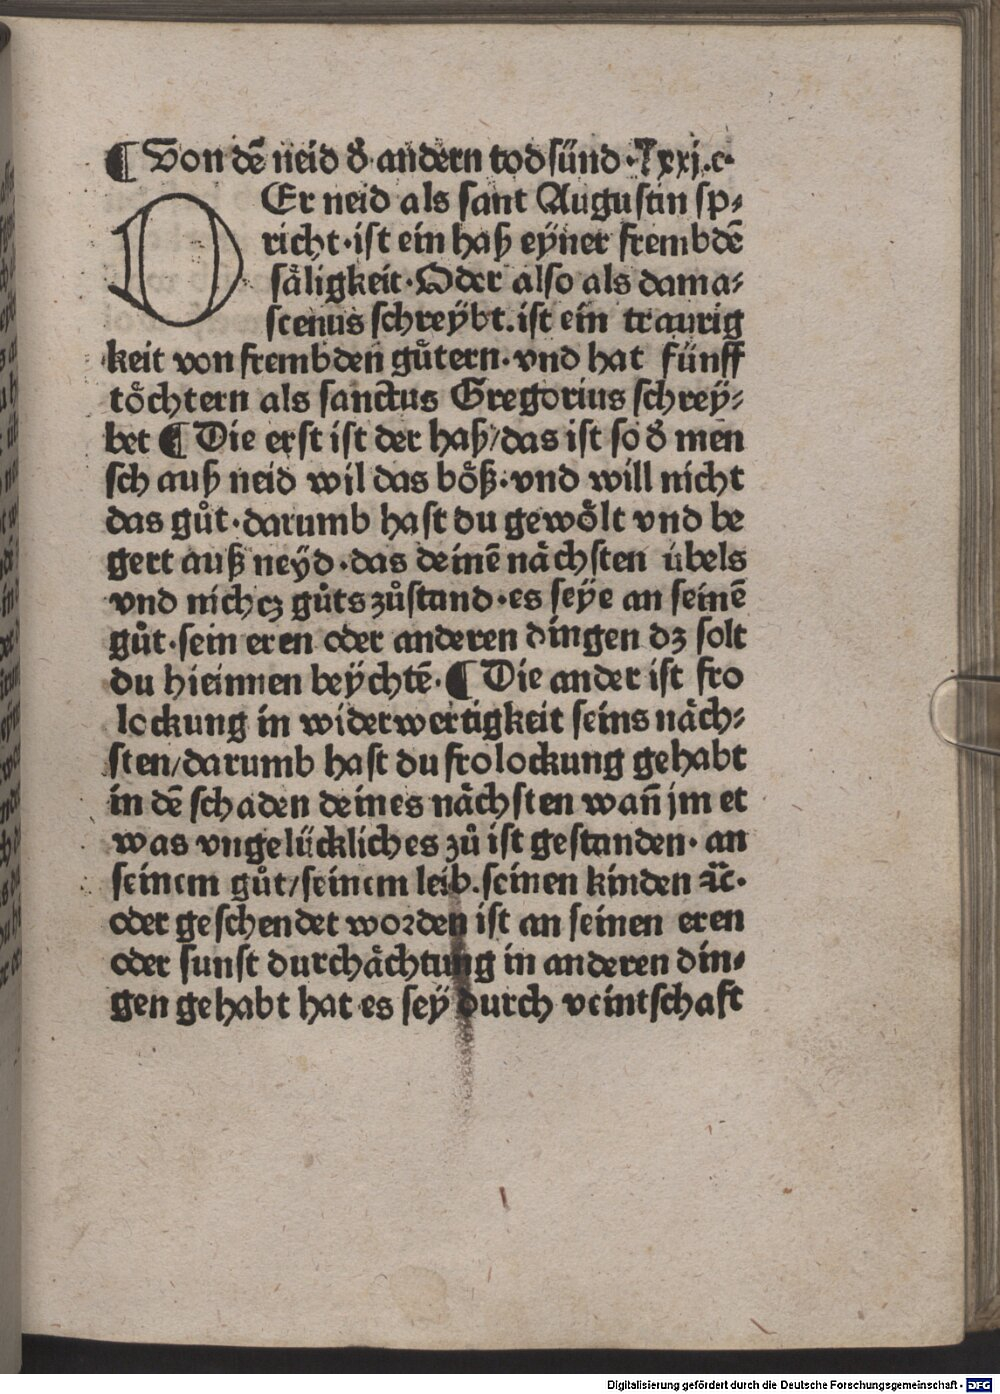 ¶ Von dē neid d̕ andern todsünd·Lxxj.c·
DEr neid als sant Augustin sp⸗
richt·ist ein haß eyner frembdē
säligkeit·Oder also als dama⸗
scenus schreÿbt.ist ein traurig
keit von frembden gůtern·vnd hat fünff
töchtern als sanctus Gregorius schreÿ⸗
bet ¶ Die erst ist der haß/das ist so d̕ men
sch auß neid wil das böß·vnd will nicht
das gůt·darumb hast du gewölt vnd be
gert auß neÿd·das deinē nächsten übels
vnd nichcz gůts zůstand·es seÿe an seinē
gůt·sein eren oder anderen dingen dz solt
du hieinnen beÿchtē·¶ Die ander ist fro
lockung in widerwertigkeit seins näch⸗
sten/darumb hast du frolockung gehabt
in dē schaden deines nächsten wañ jm et
was vngelückliches zů ist gestanden· an
seinem gůt/seinem leib.seinen kinden ⁊c̄·
oder geschendet worden ist an seinen eren
oder sunst durchächtung in anderen din⸗
gen gehabt hat es seÿ durch veintschaft
Digitalisierung gefördert durch die Deutsche Forschungsgemeinschaft - DFG